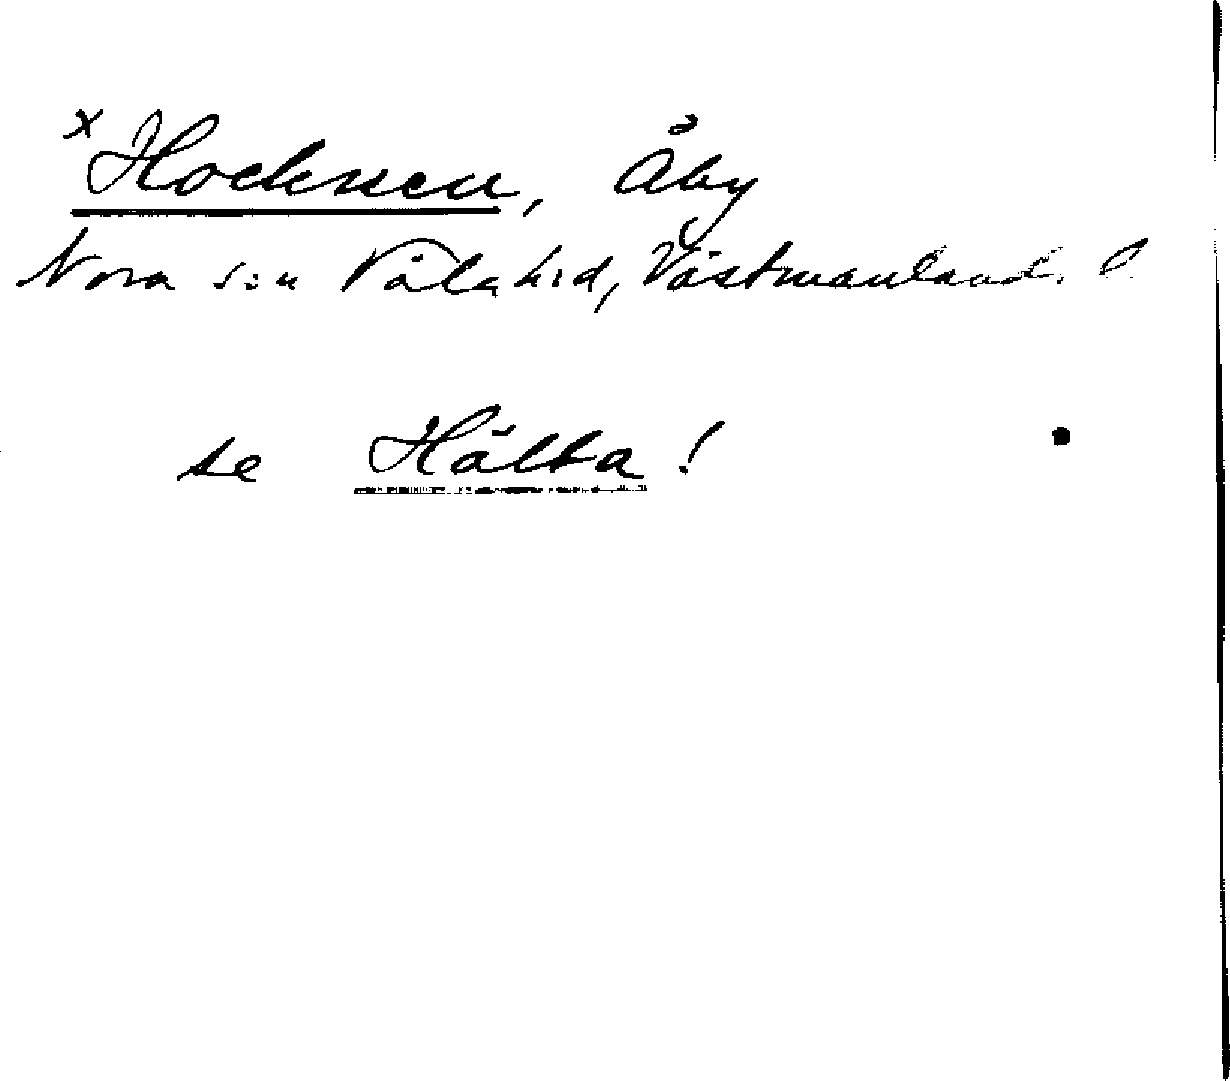 x Hocknen, Åby
Nora sn Våla hd, Västmanland. l.
se Hälta!